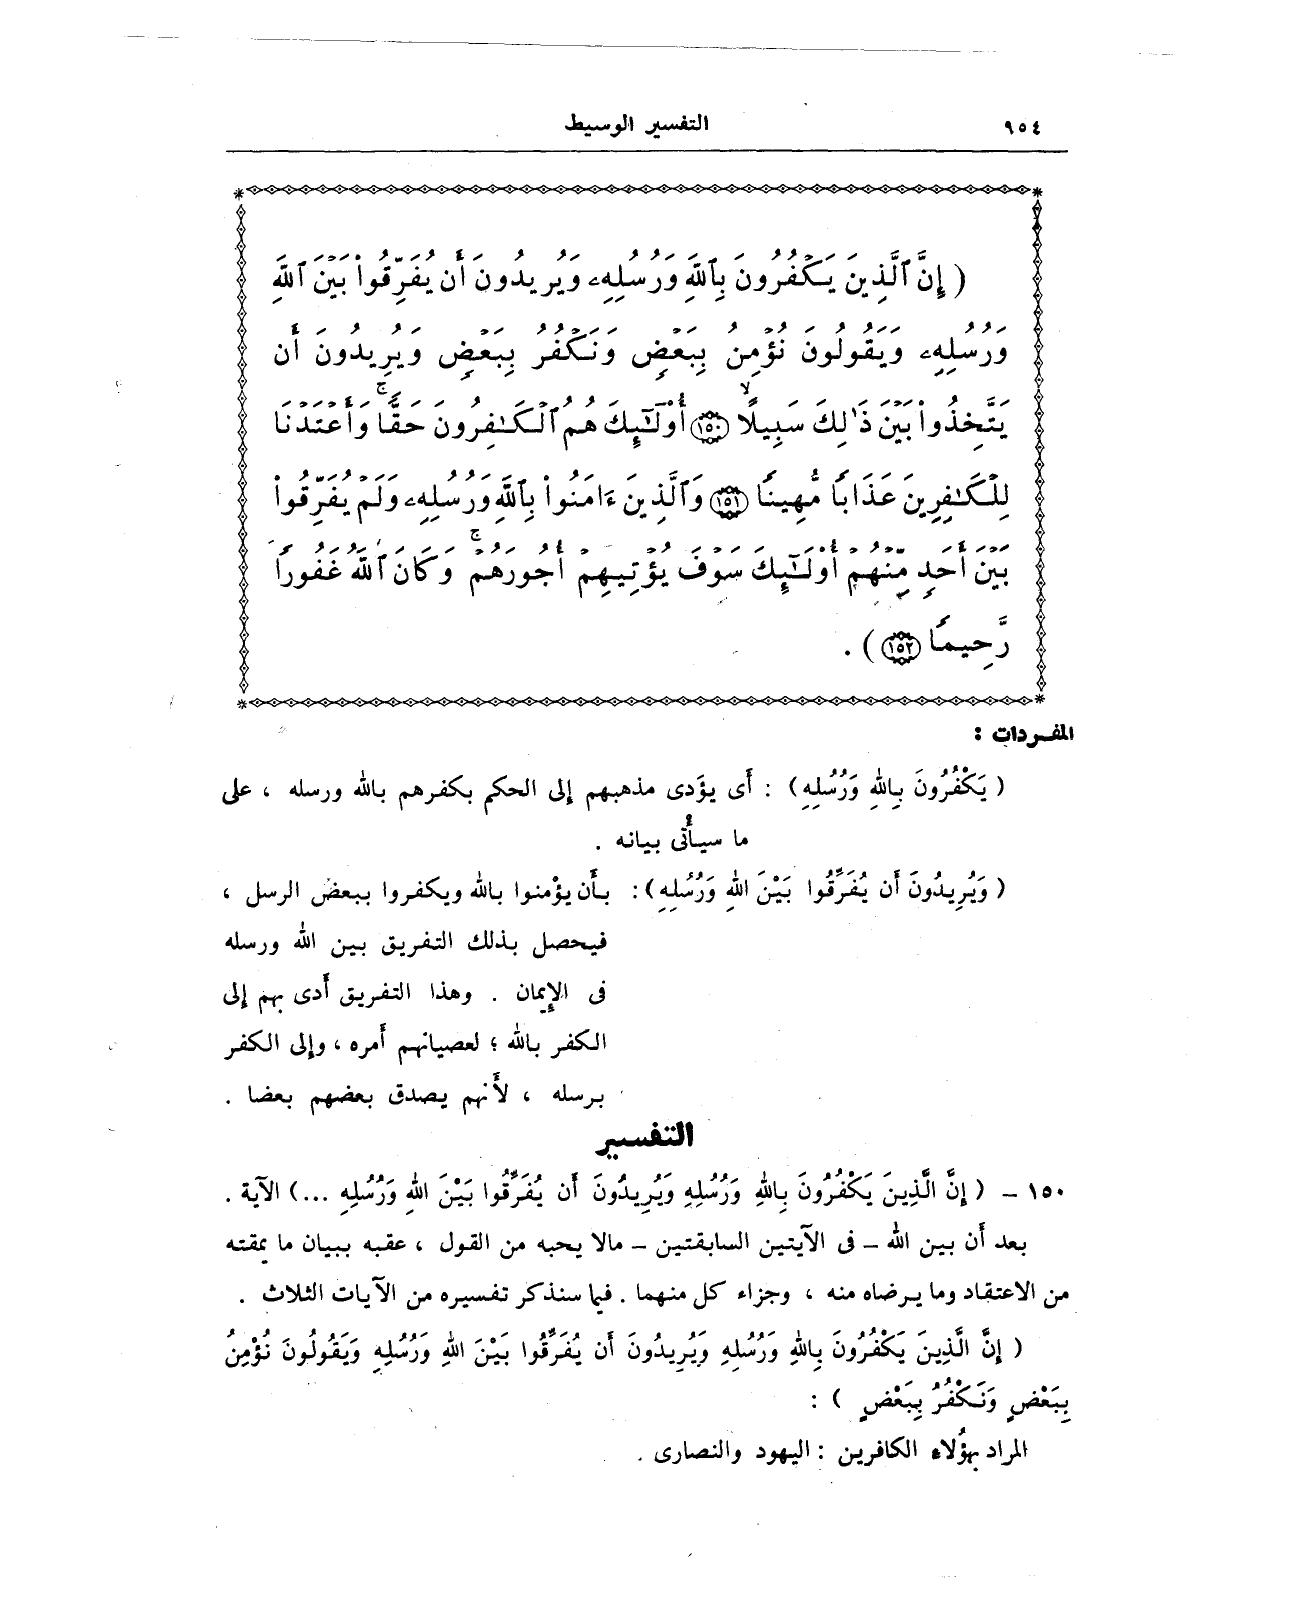 ٩٥٤
التفسير الوسيط
( إِنَّ ٱلَّذِينَ يَكْفُرُونَ بِٱللَّهِ وَرُسُلِهِۦ وَيُرِيدُونَ أَن يُفَرِّقُوا۟ بَيْنَ ٱللَّهِ
وَرُسُلِهِۦ وَيَقُولُونَ نُؤْمِنُ بِبَعْضٍ وَنَكْفُرُ بِبَعْضٍ وَيُرِيدُونَ أَن
يَتَّخِذُوا۟ بَيْنَ ذَٰلِكَ سَبِيلًا ۙ ١٥٠ أُو۟لَٰٓئِكَ هُمُ ٱلْكَٰفِرُونَ حَقًّا ۚ وَأَعْتَدْنَا
لِلْكَٰفِرِينَ عَذَابًا مُّهِينًا ١٥١ وَٱلَّذِينَ ءَامَنُوا۟ بِٱللَّهِ وَرُسُلِهِۦ وَلَمْ يُفَرِّقُوا۟
بَيْنَ أَحَدٍ مِّنْهُمْ أُو۟لَٰٓئِكَ سَوْفَ يُؤْتِيهِمْ أُجُورَهُمْ ۚ وَكَانَ ٱللَّهُ غَفُورًا
رَّحِيمًا ١٥٢ ) .
المفردات :
( يَكْفُرُونَ بِاللهِ وَرُسُلِهِ ) : أَى يؤَدى مذهبهم إلى الحكم بكفرهم بالله ورسله ، على
ما سيأْتى بيانه .
( وَيُرِيدُونَ أَن يُفَرِّقُوا بَيْنَ اللهِ وَرُسُلِهِ ) : بأَن يؤْمنوا بالله ويكفروا ببعض الرسل ،
فيحصل بذلك التفريق بين الله ورسله
فى الإِيمان . وهذا التفريق أَدى بهم إلى
الكفر بالله ؛ لعصيانهم أَمره ، وإلى الكفر
برسله ، لأَنهم يصدق بعضهم بعضا .
التفسير
١٥٠ - ( إِنَّ الَّذِينَ يَكْفُرُونَ بِاللهِ وَرُسُلِهِ وَيُرِيدُونَ أَن يُفَرِّقُوا بَيْنَ اللهِ وَرُسُلِهِ ... ) الآية .
بعد أَن بين الله - فى الآيتين السابقتين - مالا يحبه من القول ، عقبه ببيان ما يمقته
من الاعتقاد وما يرضاه منه ، وجزاء كل منهما . فيما سنذكر تفسيره من الآيات الثلاث .
( إِنَّ الَّذِينَ يَكْفُرُونَ بِاللهِ وَرُسُلِهِ وَيُرِيدُونَ أَن يُفَرِّقُوا بَيْنَ اللهِ وَرُسُلِهِ وَيَقُولُونَ نُؤْمِنُ
بِبَعْضٍ وَنَكْفُرُ بِبَعْضٍ ) :
المراد بهؤُلاء الكافرين : اليهود والنصارى .